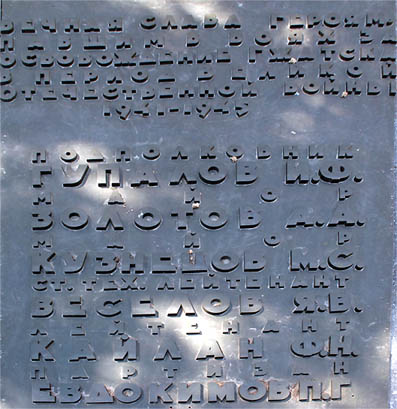 ВЕЧНАЯ СЛАВА ГЕРОЯМ,
ПАВШИМ В БОЯХ ЗА
ОСВОБОЖДЕНИЕ ГЖАТСКА
В ПЕРИОД ВЕЛИКОЙ
ОТЕЧЕСТВЕННОЙ ВОЙНЫ
1941-1945
ПОДПОЛКОВНИК
ГУПАЛОВ И.Ф.
МАЙОР
ЗОЛОТОВ А.Д.
МАЙОР
КУЗНЕЦОВ М.С.
СТ. ТЕХ. ЛЕЙТЕНАНТ
ВЕСЕЛОВ Я.В.
ЛЕЙТЕНАНТ
КАЙЛАН Ф.Н.
ПАРТИЗАН
ЕВДОКИМОВ П.Г